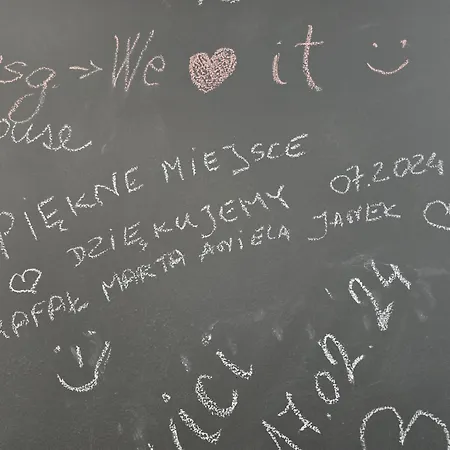 sg → We ❤ it :)
ouse
PIĘKNE MIEJSCE
DZIĘKUJEMY 07.2024
RAFAŁ MARTA ANIELA JANEK